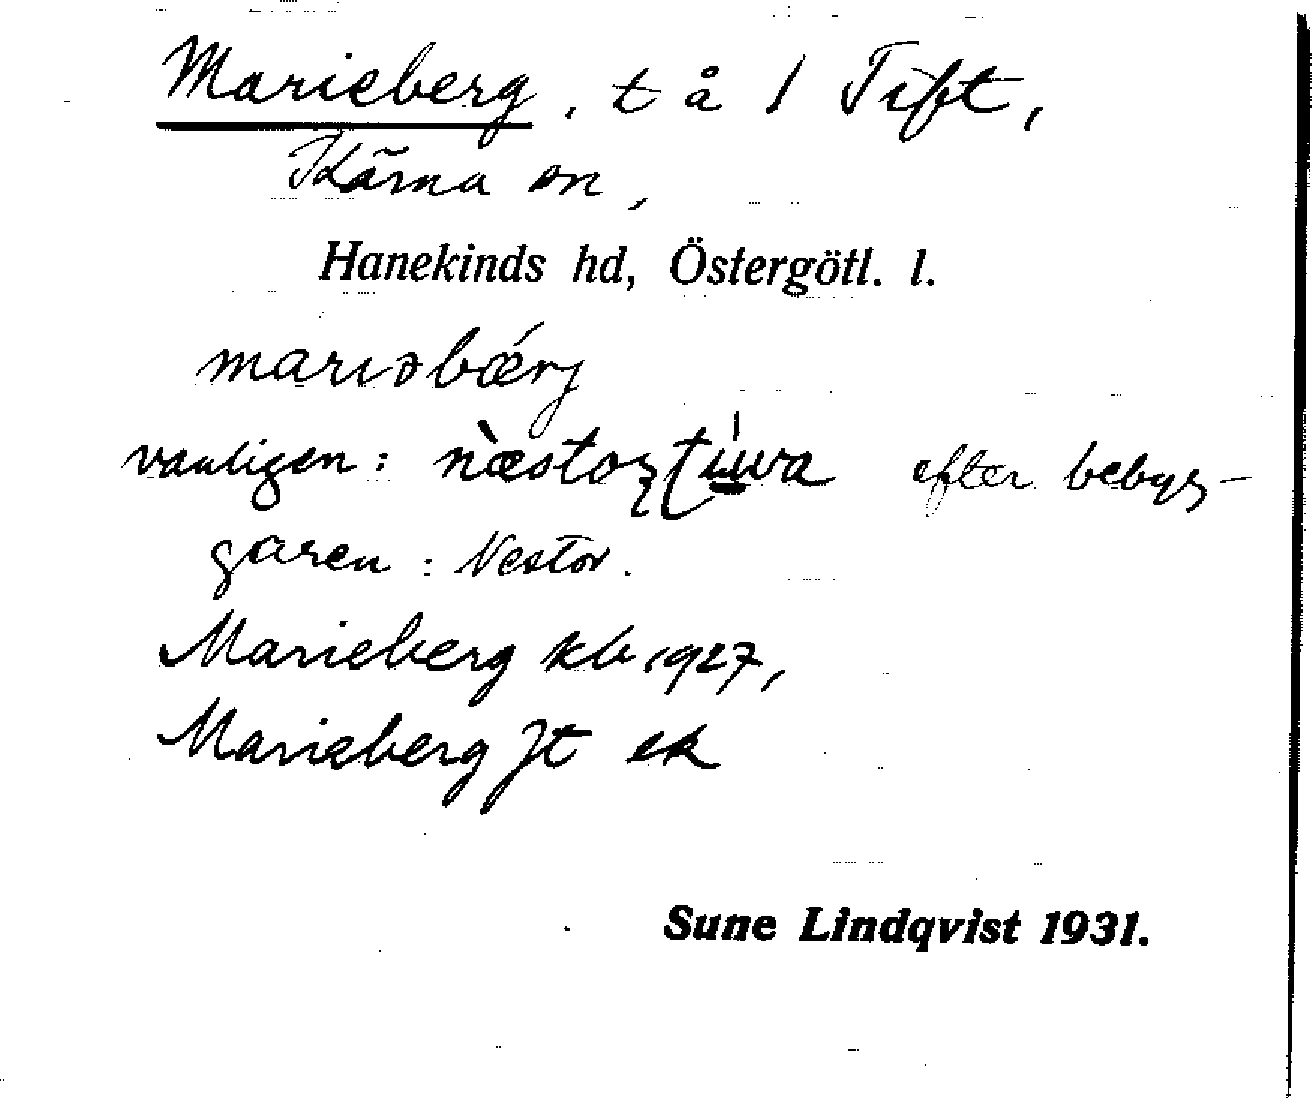 Marieberg, t å 1 Tift,
Kärna sn,
Hanekinds hd, Östergötl. l.
marıəbǽrj
vanligen: næ̀stoʂt efter bebyg-
garen: Nestor.
Marieberg kb 1927,
Marieberg Jt ek
Sune Lindqvist 1931.